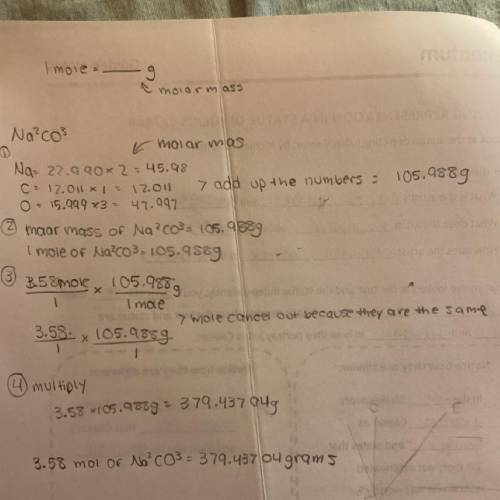 1 mole = ____ g
molar mass
Na²CO³
molar mas
①
Na = 22.990 × 2 = 45.98
C = 12.011 × 1 = 12.011 > add up the numbers = 105.988g
O = 15.999 × 3 = 47.997
② moar mass of Na²CO³ = 105.988g
1 mole of Na²CO³ = 105.988g
③ 3.58 mole/1 × 105.988g/1 mole
> mole cancel out because they are the same
3.58/1 × 105.988g/1
④ multiply
3.58 × 105.988g = 379.43704g
3.58 mol of Na²CO³ = 379.43704 grams